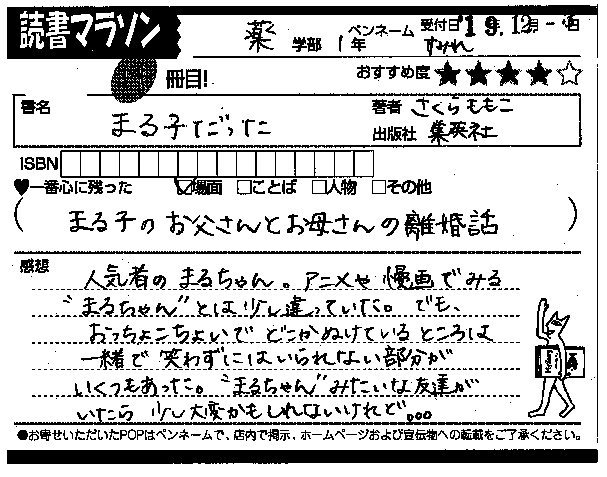 読書マラソン
薬 学部 1年 ペンネーム すみれ 受付日 '19.12月
冊目! おすすめ度 ★★★★☆
書名 まる子だった 著者 さくらももこ
出版社 集英社
ISBN
♥一番心に残った ☑場面 □ことば □人物 □その他
(まる子のお父さんとお母さんの離婚話)
感想
人気者のまるちゃん。アニメや漫画でみる
"まるちゃん"とは少し違っていた。でも、
おっちょこちょいでどこかぬけているところは
一緒で笑わずにはいられない部分が
いくつもあった。"まるちゃん"みたいな友達が
いたら少し大変かもしれないけれど。。。
●お寄せいただいたPOPはペンネームで、店内で掲示、ホームページおよび宣伝物への転載をご了承ください。